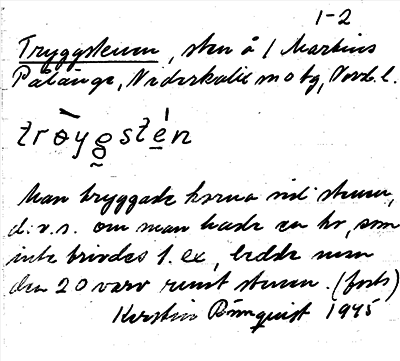 1-2
Tryggstenen, sten å / Martins
Palänge, Nederkalix möbg, Nordb. l.
trøygstén
Man tryggade korna vid stenen,
d.v.s. om man hade en ko, som
inte trivdes t. ex, ledde man
den 20 varv runt stenen. (forts)
Kerstin Rönnquist 1945